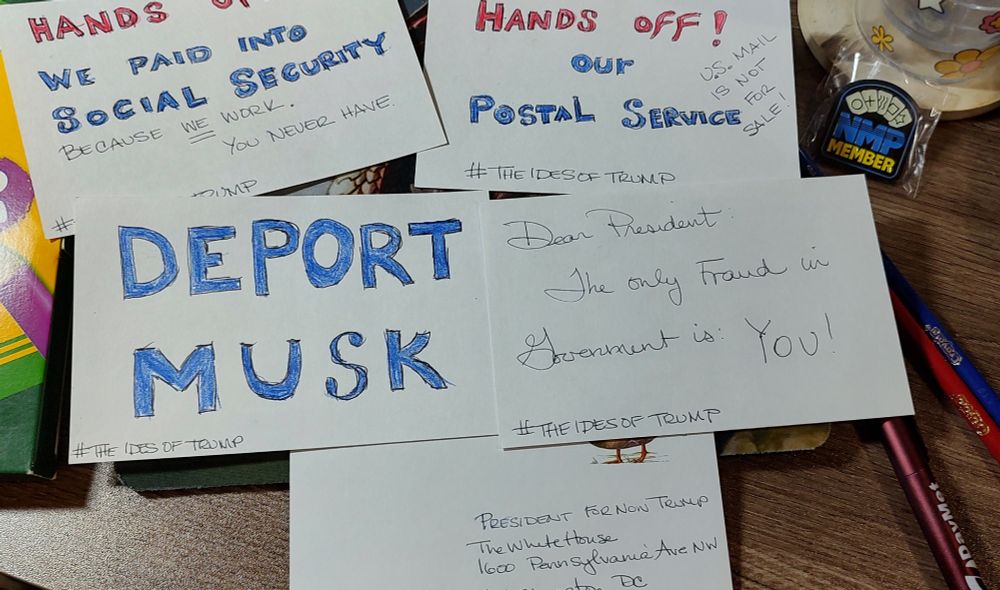 HANDS OFF
WE PAID INTO
SOCIAL SECURITY
BECAUSE WE WORK.
YOU NEVER HAVE.
#
TRUMP
HANDS OFF!
OUR
POSTAL SERVICE
U.S. MAIL
IS NOT
FOR
SALE!
#THEIDESOFTRUMP
NMP
MEMBER
DEPORT
MUSK
#THEIDESOFTRUMP
Dear President:
The only Fraud in
Government is: YOU!
#THEIDESOFTRUMP
PRESIDENT FOR NOW TRUMP
The White House
1600 Pennsylvania Ave NW
DC
ADayMet